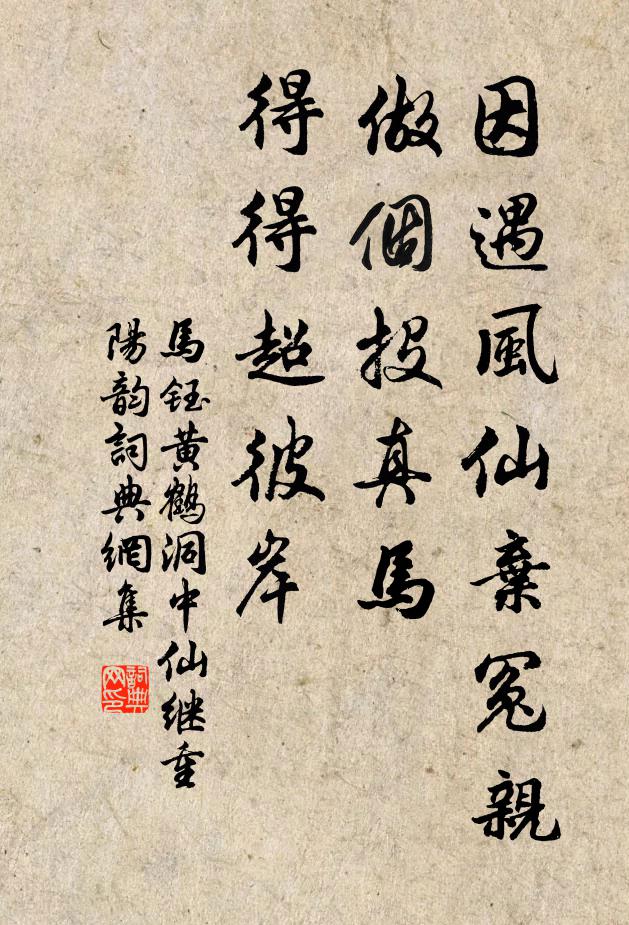 因遇風仙棄冤親
做個投真馬
得得超彼岸
馬鈺黃鶴洞中仙继重
陽韵詞典網集
詞典网印